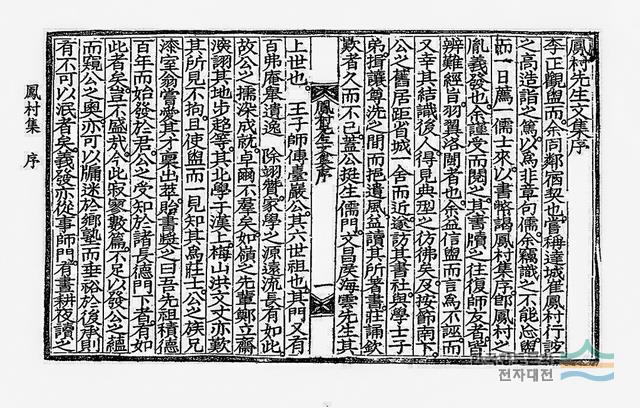 鳳村先生文集序
李正觀盥而余同鄰宿契也嘗稱達城崔鳳村行誼
之高造詣之篤以爲非章句儒余竊識之不能忘盥
而一日薦一儒士來以書幣謁鳳村集序郎鳳村之
胤義發也余謹受而閱之其書牘之往復師友者皆
辨難經旨羽翼洛閩者也余益信盥而言爲不誣而
又幸其結識後人得見典型之彷彿矣及按節南下
公之舊居距省城一舍而近遂訪其書社與學士子
弟揖讓尊洗之間而挹遺風益讀其所著書莊誦欽
歎者久而不已蓋公挺生儒門文昌侯海雲先生其
鳳村先生文集序
上世也 王子師傅臺巖公其六世祖也其門又有
百弗庵擧遺逸 除翊贊家學之源遠流長有如此
故公之擩染成就卓爾不羣矣如嶺之先輩鄭立齋
深詡其地步超等其北學于漢上梅山洪文丈亦歎
其所見不拘且使盥而一見知其爲莊士公之族兄
漆室翁嘗愛其才稟出萃貽書奬之曰吾先祖積德
百年而始發於君公之受知於諸長德門下者有如
此者矣豈不盛哉今此寂寥數篇不足以發公之蘊
而窺公之奧亦可以牖迷於鄉塾而垂裕於後承則
有不可以泯者矣義發亦從事師門有晝耕夜讀之
鳳村集 序
전자대전